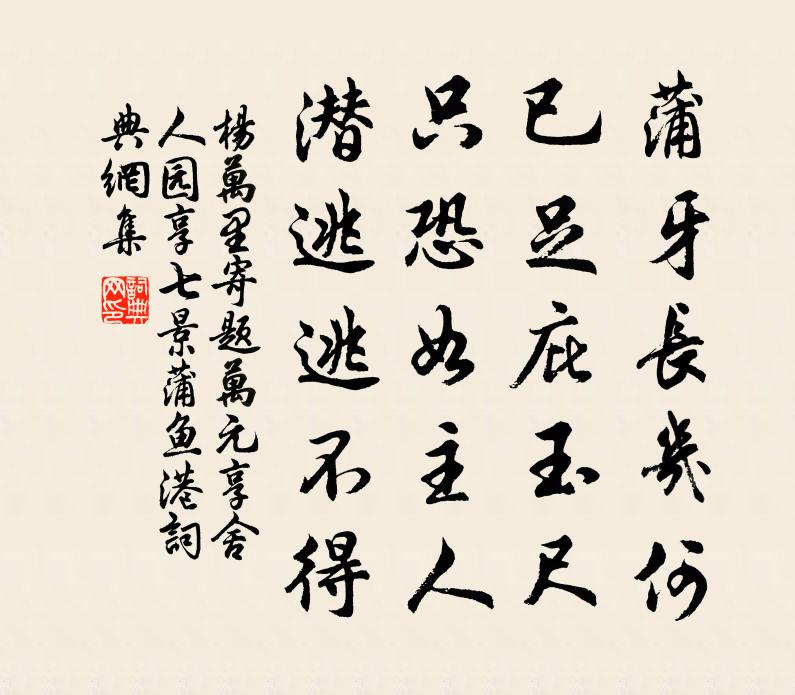 蒲牙長幾何
已足庇玉尺
只恐如主人
潜逃逃不得
楊萬里寄題萬元享舍
人园享七景蒲鱼港詞
典網集
詞典网印